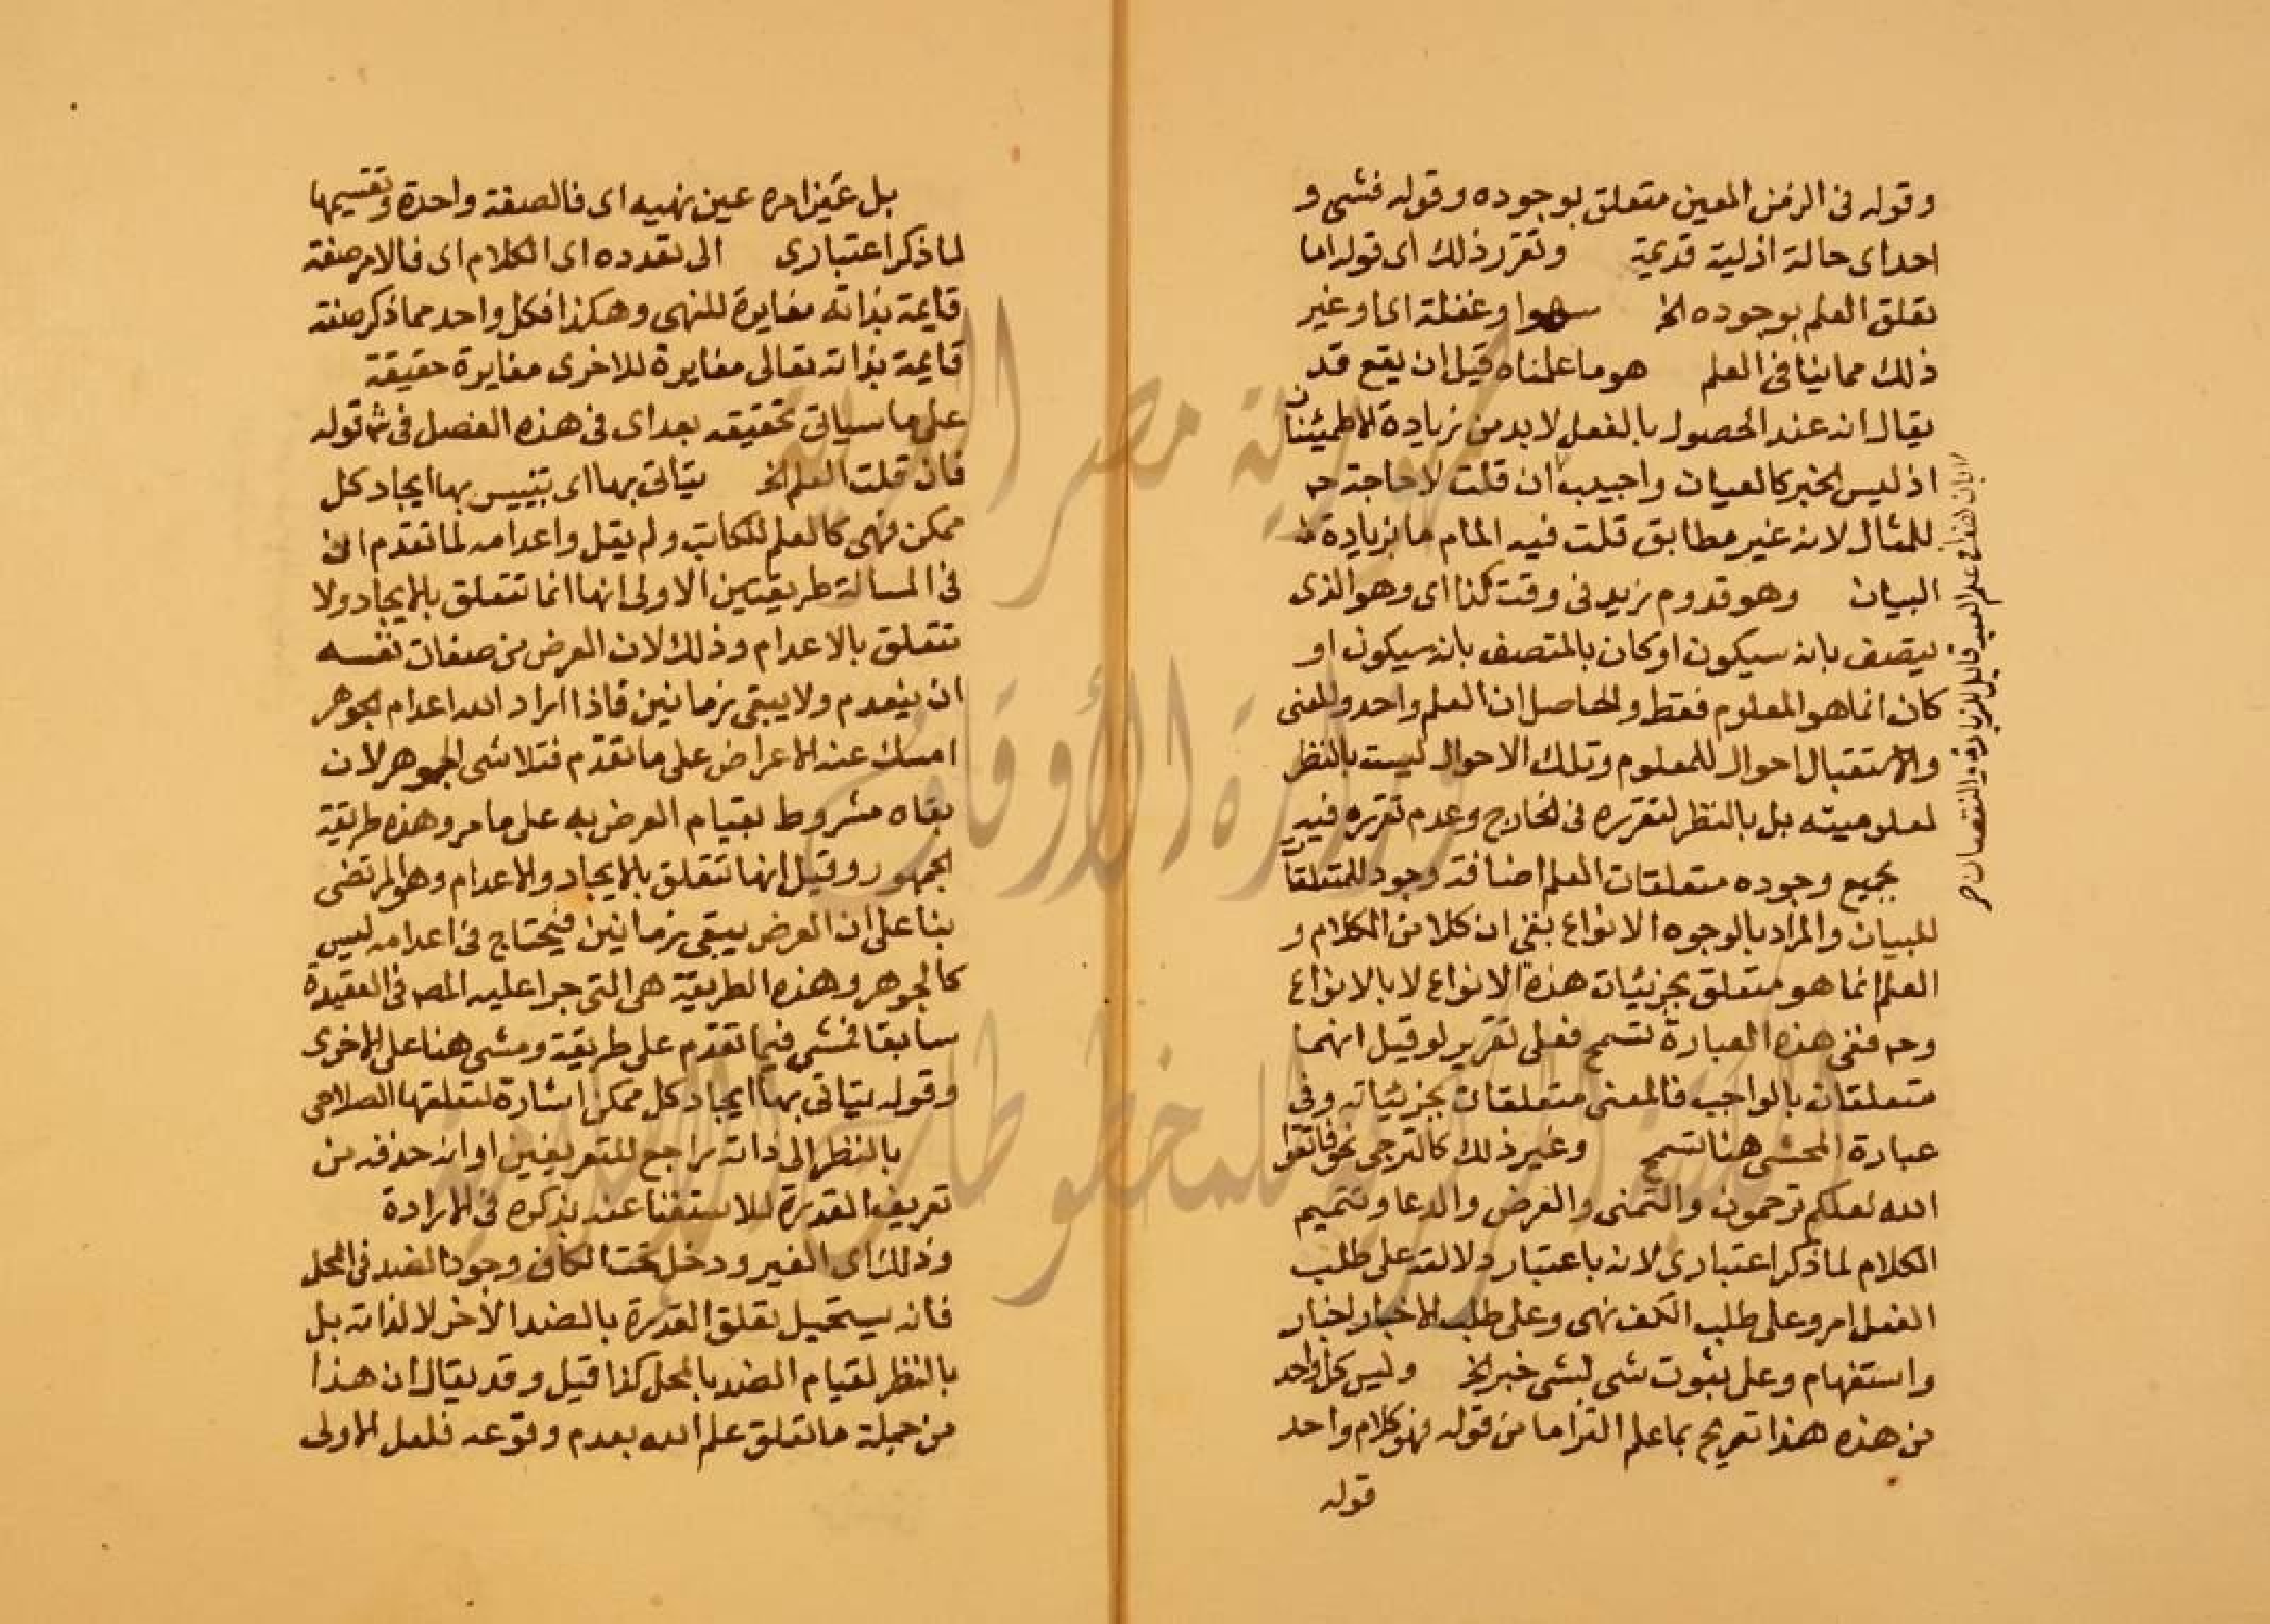 وقوله فى الزمن المعين متعلق بوجوده وقوله فشى و
احد اى حالة ازلية قديمة وتقرر ذلك اى قوله اما
تعلق العلم بوجوده الخ سهوا وغفلة اى او غير
ذلك مما ينافى العلم هو ما علمناه قبل ان يقع قد
يقال انه عند الحصول بالفعل لا بد من زيادة الاطمئنان
اذ ليس الخبر كالعيان واجيب ان قلت لا حاجة ح
للمثال لانه غير مطابق قلت فيه المام ما بزيادة
البيان وهو قدوم زيد فى وقت كذا اى وهو الذى
يتصف بانه سيكون او كان بالمتصف بانه سيكون او
كان انما هو المعلوم فقط والحاصل ان العلم واحد والمضى
والاستقبال احوال للمعلوم وتلك الاحوال ليست بالنظر
لمعلوميته بل بالنظر لتقرره فى الخارج وعدم تقرره فيه
بجميع وجوده متعلقات العلم اضافة وجود للمتعلقات
للبيان والمراد بالوجوه الانواع بقى ان كلا من الكلام و
العلم انما هو متعلق بجزئيات هذه الانواع لا بالانواع
وح ففى هذه العبارة تسمح فعلى تقرير لو قيل انهما
متعلقان بالواجب فالمعنى متعلقان بجزئياته وفى
عبارة المحشى هنا تسمح وغير ذلك كالترجى نحو فاتقوا
الله لعلكم ترحمون والتمنى والعرض والدعا وتتميم
الكلام لما ذكر اعتبارى لانه باعتبار دلالته على طلب
الفعل امر وعلى طلب الكف نهى وعلى طلب الاخبار اخبار
واستفهام وعلى ثبوت شى لشى خبر الخ وليس كل واحد
من هذه هذا تصريح بما علم التزاما من قوله فهو كلام واحد
قوله
العبد قابل للزيادة والنقصان
بل عين امره عين نهيه اى فالصفة واحدة وتقسيمها
لما ذكر اعتبارى الى تعدده اى الكلام اى فالامر صفة
قايمة بذاته مغايرة للنهى وهكذا فكل واحد مما ذكر صفة
قايمة بذاته تعالى مغايرة للاخرى مغايرة حقيقة
على ما سياتى تحقيقه بعد اى فى هذه الفصل فى قوله
فان قلت العلم الخ يتاتى بها اى يتيسر بها ايجاد كل
ممكن فهى كالعلم للكاتب ولم يقل واعدامه لما تقدم ان
فى المسالة طريقتين الاولى انها انما تتعلق بالايجاد ولا
تتعلق بالاعدام وذلك لان العرض من صفات نفسه
ان ينعدم ولا يبقى زمانين فاذا اراد الله اعدام الجوهر
امسك عنه الاعراض على ما تقدم فتلاشى الجوهر لان
بقاه مشروط بقيام العرض به على ما مر وهذه طريقة
الجمهور وقيل انها تتعلق بالايجاد والاعدام وهو المرتضى
بنا على ان العرض يبقى زمانين فيحتاج فى اعدامه ليس
كالجوهر وهذه الطريقة هى التى جرا عليه المص فى العقيدة
سابقا فمشى فيما تقدم على طريقة ومشى هنا على الاخرى
وقوله يتاتى بها ايجاد كل ممكن اشارة لتعلقها الصلاحى
بالنظر الى ذاته راجع للتعريفين او انه حذفه من
تعريف القدرة للاستغنا عنه بذكره فى الارادة
وذلك اى الغير ودخل تحت الكاف وجود الضد فى المحل
فانه يستحيل تعلق القدرة بالضد الاخر لا لذاته بل
بالنظر لقيام الضد بالمحل كذا قيل وقد يقال ان هذا
من جملة ما تعلق علم الله بعدم وقوعه فلعل الاولى